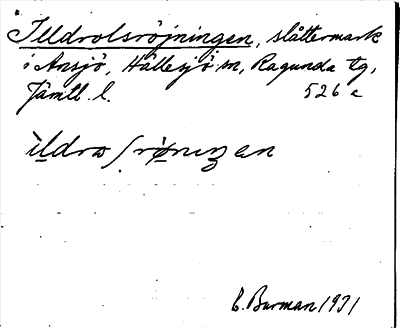 Illdrolsröjningen, slåttermark
i Ansjö, Hällesjö sn, Ragunda tg,
Jämtl. l. 526 c
C. Burman 1931